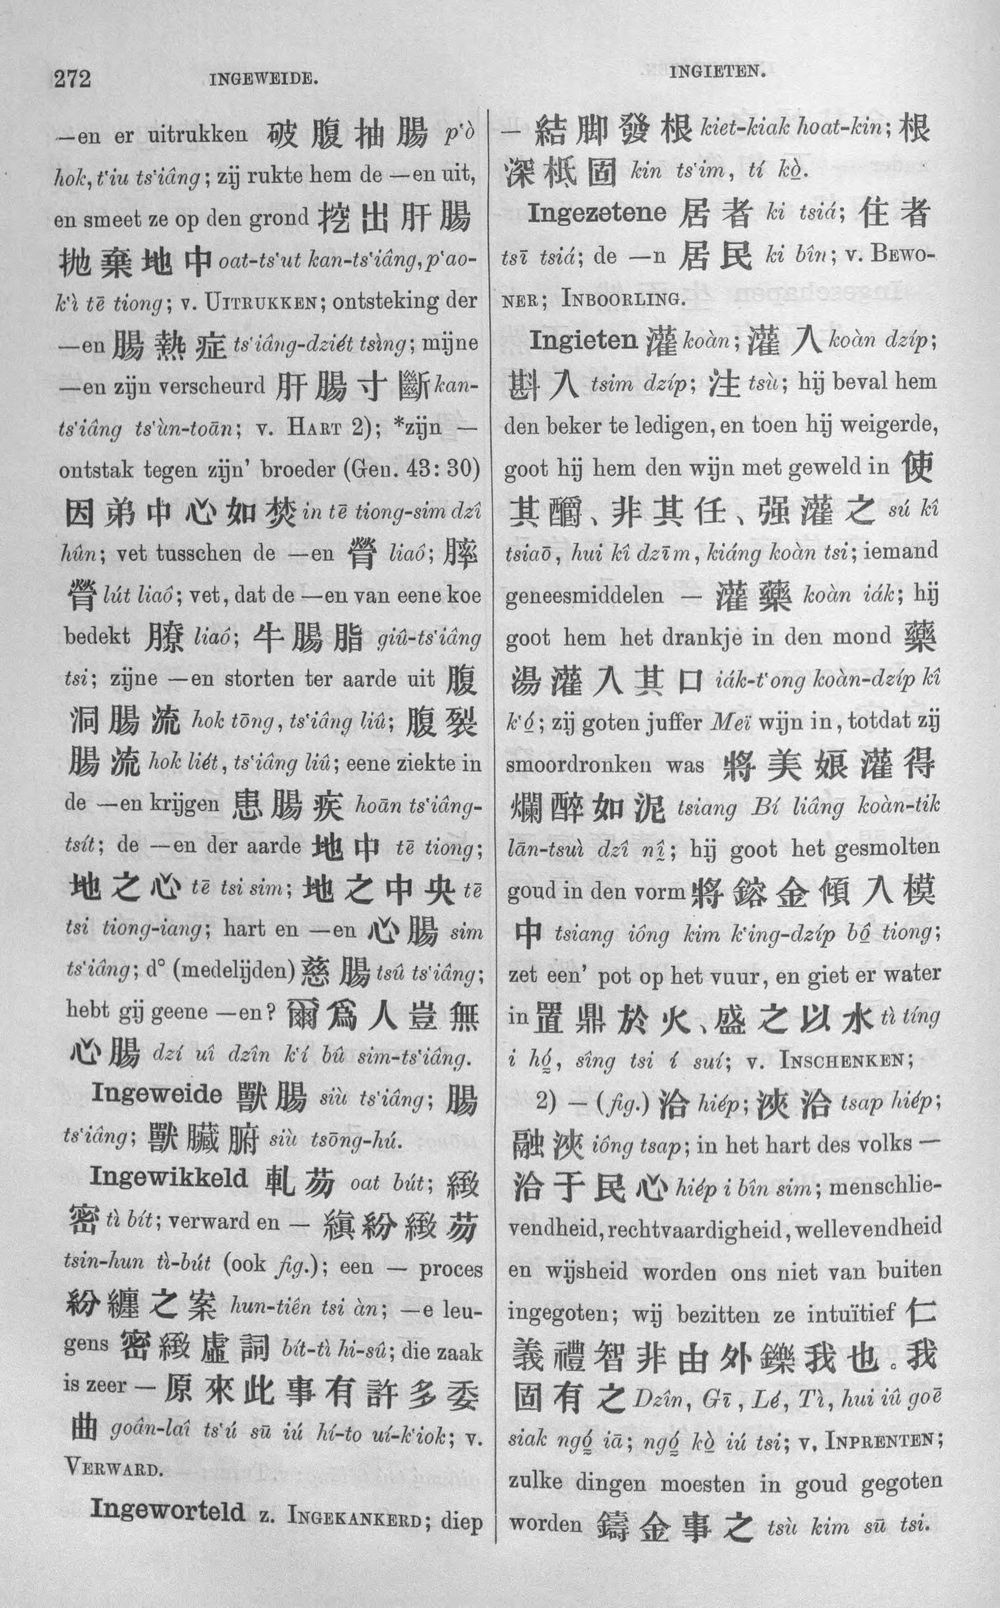 272
INGEWEIDE.
INGIETEN.
—en er uitrukken 破腹抽腸 p‘ò
hok, t‘iu ts‘iâng; zij rukte hem de —en uit,
en smeet ze op den grond 挖出肝腸
抛棄地中 oat-ts‘ut kan-ts‘iâng, p‘ao-
k‘ì tē tiong; v. UITRUKKEN; ontsteking der
—en 腸熱症 ts‘iâng-dziét tsìng; mijne
—en zijn verscheurd 肝腸寸斷 kan-
ts‘iâng ts‘ùn-toān; v. HART 2); *zijn —
ontstak tegen zijn’ broeder (Gen. 43: 30)
因弟中心如焚 in tē tiong-sim dzî
hûn; vet tusschen de —en 膋 liaô; 膟
膋 lút liaô; vet, dat de —en van eene koe
bedekt 膫 liaô; 牛腸脂 giû-ts‘iâng
tsi; zijne —en storten ter aarde uit 腹
洞腸流 hok tōng, ts‘iâng liû; 腹裂
腸流 hok liét, ts‘iâng liû; eene ziekte in
de —en krijgen 患腸疾 hoān ts‘iâng-
tsít; de —en der aarde 地中 tē tiong;
地之心 tē tsi sim; 地之中央 tē
tsi tiong-iang; hart en —en 心腸 sim
ts‘iâng; d° (medelijden) 慈腸 tsû ts‘iâng;
hebt gij geene —en? 爾爲人豈無
心腸 dzí uî dzîn k‘í bû sim-ts‘iâng.
Ingeweide 獸腸 siù ts‘iâng; 腸
ts‘iâng; 獸臟腑 siù tsōng-hú.
Ingewikkeld 軋芴 oat bút; 緻
密 tì bít; verward en — 縝紛緻芴
tsin-hun tì-bút (ook fig.); een — proces
紛纏之案 hun-tiên tsi àn; —e leu-
gens 密緻虛詞 bít-tì hi-sû; die zaak
is zeer — 原來此事有許多委
曲 goân-laî ts‘ú sū iú hí-to uí-k‘iok; v.
VERWARD.
Ingeworteld z. INGEKANKERD; diep
— 結脚發根 kiet-kiak hoat-kin; 根
深柢固 kin ts‘im, tí kò͘.
Ingezetene 居者 ki tsiá; 住者
tsī tsiá; de —n 居民 ki bîn; v. BEWO-
NER; INBOORLING.
Ingieten 灌 koàn; 灌入 koàn dzíp;
斟入 tsim dzíp; 注 tsù; hij beval hem
den beker te ledigen, en toen hij weigerde,
goot hij hem den wijn met geweld in 使
其釂、非其任、强灌之 sú kî
tsiaō, hui kî dzīm, kiáng koàn tsi; iemand
geneesmiddelen — 灌藥 koàn iák; hij
goot hem het drankje in den mond 藥
湯灌入其口 iák-t‘ong koàn-dzíp kî
k‘ó͘; zij goten juffer Meï wijn in, totdat zij
smoordronken was 將美娘灌得
爛醉如泥 tsiang Bí liâng koàn-tik
lān-tsuì dzî nî; hij goot het gesmolten
goud in den vorm 將鎔金傾入模
中 tsiang iông kim k‘ing-dzíp bô͘ tiong;
zet een’ pot op het vuur, en giet er water
in 置鼎於火、盛之以水 tì tíng
i hó͘, sîng tsi í suí; v. INSCHENKEN;
2) — (fig.) 洽 hiép; 浹洽 tsap hiép;
融浹 iông tsap; in het hart des volks —
洽于民心 hiép i bîn sim; menschlie-
vendheid, rechtvaardigheid, wellevendheid
en wijsheid worden ons niet van buiten
ingegoten; wij bezitten ze intuïtief 仁
義禮智非由外鑠我也。我
固有之 Dzîn, Gī, Lé, Tì, hui iû goē
siak ngó͘ iā; ngó͘ kò͘ iú tsi; v. INPRENTEN;
zulke dingen moesten in goud gegoten
worden 鑄金事之 tsù kim sū tsi.